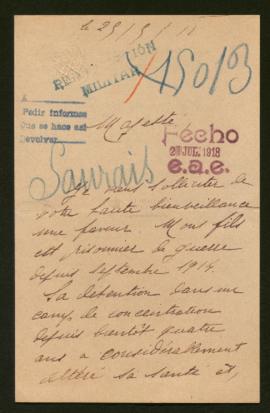 REPATRIACIÓN
MILITAR
15013
A
Pedir informes
Que se hace así
Devolver
Majesté
Fecho
JUL. 1918
e.a.e.
Saurais
Je viens solliciter de
votre haute bienveillance
une faveur. Mons fils
est prisonnier de guerre
depuis septembre 1914.
Sa détention dans un
camp de concentration
depuis bientôt quatre
ans a considérablement
altéré sa santé et,